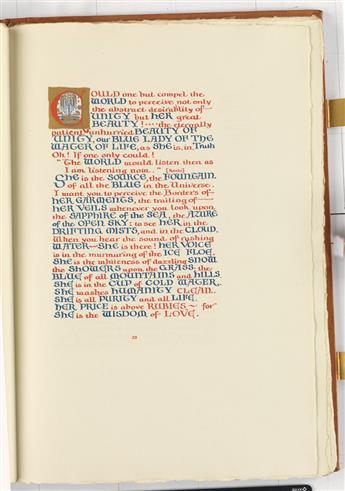 COULD one but compel the
WORLD to perceive not only
the abstract desirability of
UNITY but HER great
BEAUTY! .... the eternally
patient, unhurried BEAUTY OF
UNITY, our BLUE LADY OF THE
WATER OF LIFE, as SHE is, in Truth
Oh! If one only could!
"The WORLD would listen then as
I am listening now.." [Shelley]
SHE is the SOURCE, the FOUNTAIN
of all the BLUE in the Universe.
I want you to perceive the Borders of
HER GARMENTS, the trailing of
HER VEILS whenever you look upon
the SAPPHIRE of the SEA, the AZURE
of the OPEN SKY: to see HER in the
DRIFTING MISTS, and in the CLOUD.
When you hear the sound of rushing
WATER—SHE is there! HER VOICE
is in the murmuring of the ICE FLOE.
SHE is the whiteness of dazzling SNOW
the SHOWERS upon the GRASS: the
BLUE of all MOUNTAINS and HILLS.
SHE is in the CUP of COLD WATER,.
SHE washes HUMANITY CLEAN..
SHE is all PURITY and all LIFE.
HER PRICE is above RUBIES ~ for
SHE is the WISDOM of LOVE.